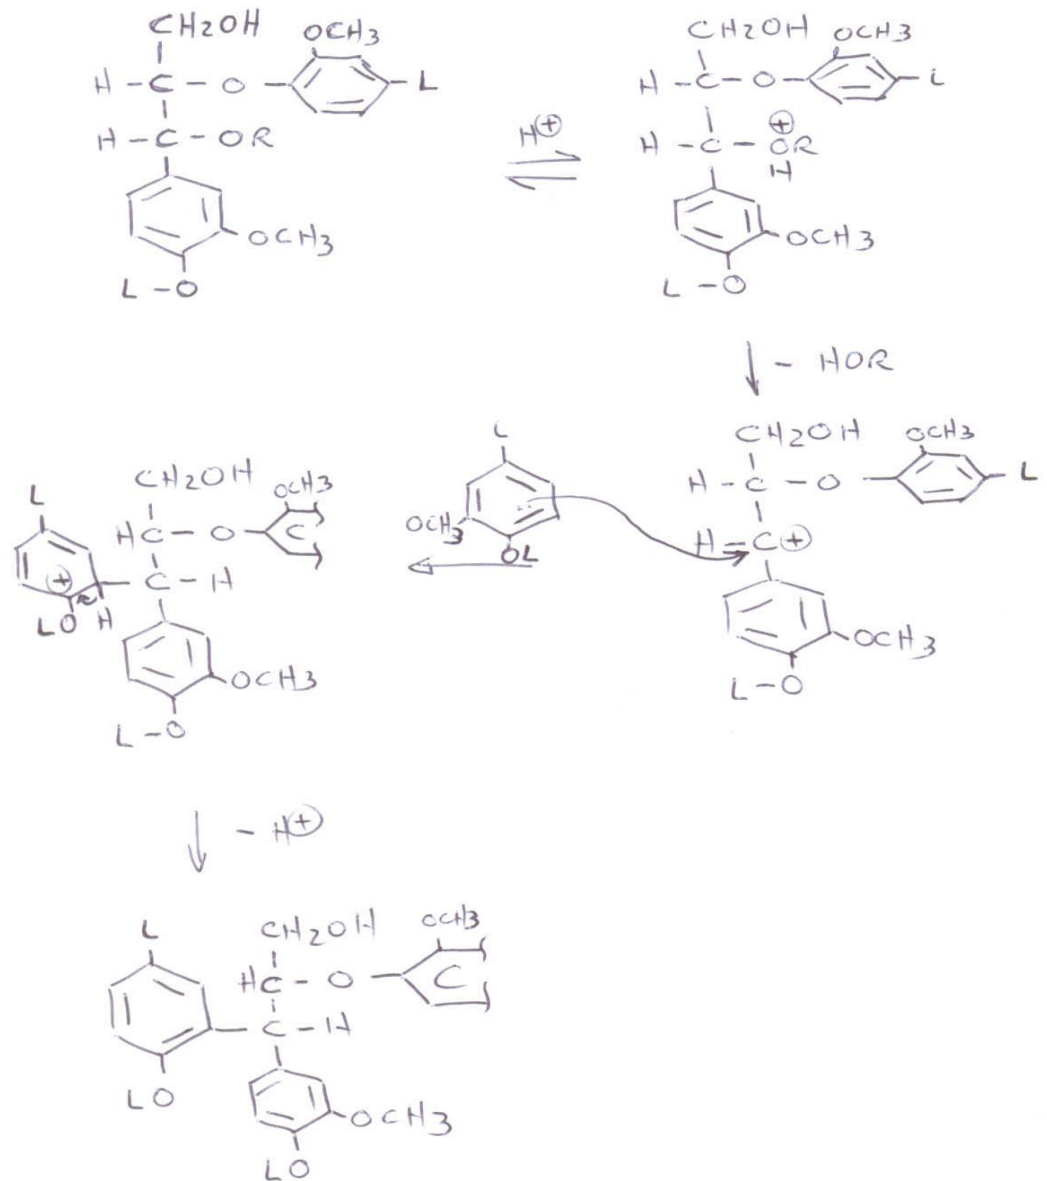 CH2OH OCH3
H - C - O - L
H - C - OR
OCH3
L - O
H⊕
CH2OH OCH3
H - C - O - L
⊕
H - C - OR
H
OCH3
L - O
- HOR
CH2OH OCH3
H - C - O - L
H - C ⊕
OCH3
L - O
L
OCH3
OL
L
CH2OH OCH3
HC - O - C
⊕ - C - H
LO H
OCH3
L - O
- H⊕
L
CH2OH OCH3
HC - O - C
C - H
LO
OCH3
LO